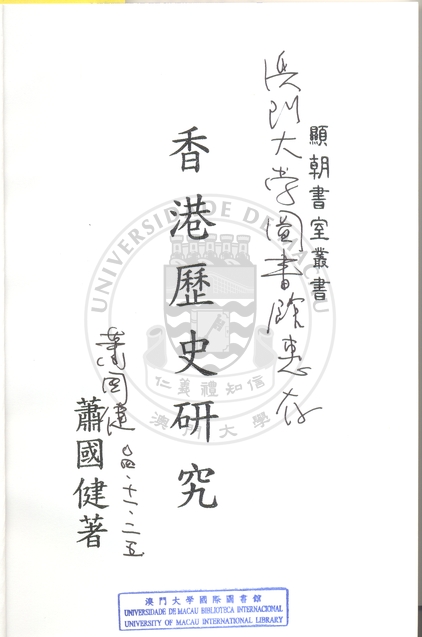 顯朝書室叢書
澳門大学圖書館惠存
香港歷史研究
蕭國健著
蕭国健 〇四.十一.二五
UNIVERSIDADE DE MACAU
仁義禮知信
澳門大學
澳門大學國際圖書館
UNIVERSIDADE DE MACAU BIBLIOTECA INTERNACIONAL
UNIVERSITY OF MACAU INTERNATIONAL LIBRARY